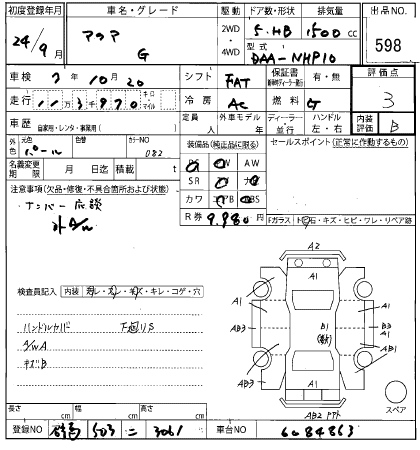 初度登録年月 車名・グレード 駆動 ドア数・形状 排気量 出品NO.
24/9月 アクア G 2WD ・ 4WD 5.HB 1500cc 598
型式 DAA-NHP10
車検 7年10月20 シフト FAT 保証書 有・無 評価点
走行 11万3千970 キロ マイル 冷房 AC 燃料 G 3
車歴 自家用・レンタ・事業用( ) 定員 人 外車モデル 年 ディーラー・並行 ハンドル 左・右 内装評価 B
外色 元色 パール 色替 カラーNO 082 装備品(純正品に限る) セールスポイント(正常に作動するもの)
名義変更期限 月 日迄 積載 t AW
SR
注意事項(欠品・修復・不具合箇所および状態) カワ
ナンバー応談 R券 9.980円
外A/W Fガラス トビ石・キズ・ヒビ・ワレ・リペア跡
A2
A1
検査員記入 内装 スレ・ヨレ・キズ・キレ・コゲ・穴
A1 A1
ハンドルカバー 下廻りS AB3 B1 B3 A1
A/WA AB1
キズB AB3 AB3
A1
AB2
長さ cm 幅 cm 高さ cm スペア
登録NO 群馬 503 ニ 3061 車台NO 6084863